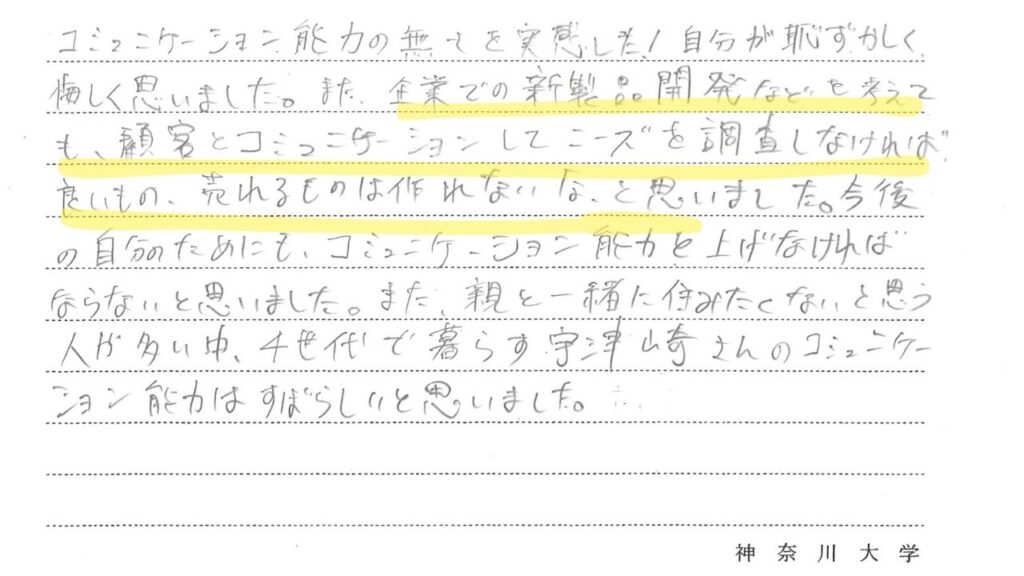 コミュニケーション能力の無さを実感した！自分が恥ずかしく、
悔しく思いました。また、企業での新製品開発などを考えて
も、顧客とコミュニケーションしてニーズを調査しなければ、
良いもの、売れるものは作れないな、と思いました。今後
の自分のためにも、コミュニケーション能力を上げなければ
ならないと思いました。また、親と一緒に住みたくないと思う
人が多い中、4世代で暮らす宇津﨑さんのコミュニケー
ション能力はすばらしいと思いました。
神奈川大学